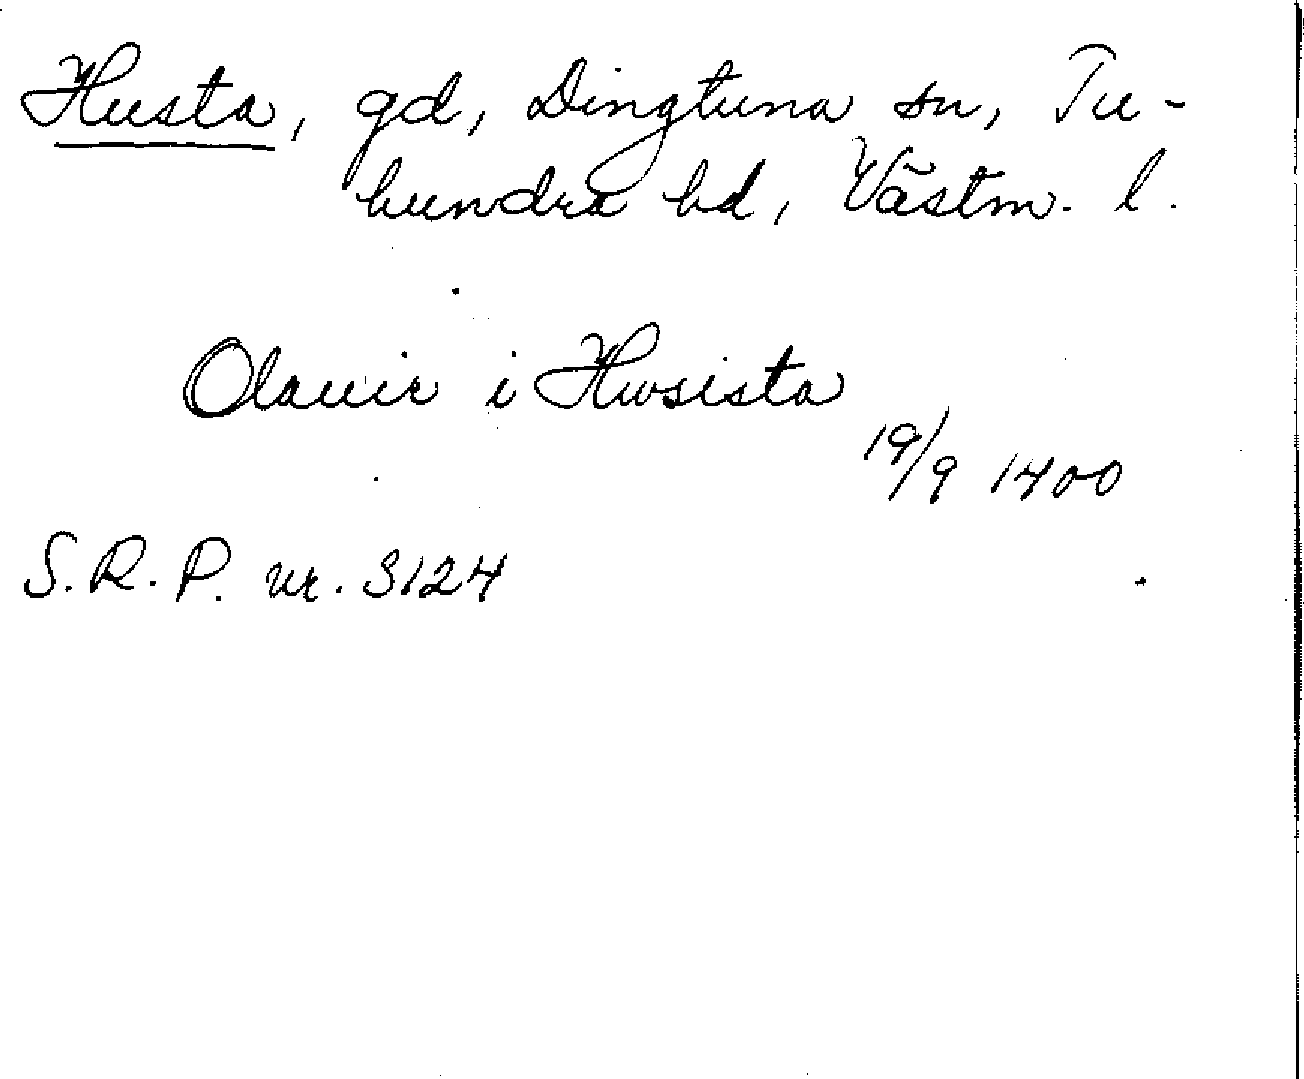 Husta, gd, Dingtuna sn, Tu-
hundra hd, Västm. l.
Olauir i Hwsista
19/9 1400
S.R.P. nr. 3124